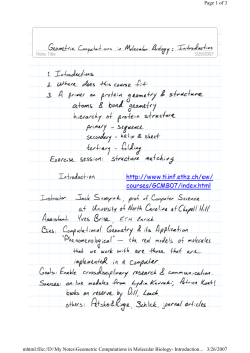 Page 1 of 3
Geometric Computations in Molecular Biology: Introduction
Note Title
3/26/2007
1. Introductions
2. Where does this course fit
3. A primer on protein geometry & structure
atoms & bond geometry
hierarchy of protein structure
primary - sequence
secondary - helix & sheet
tertiary - folding
Exercise session: structure matching
Introduction
http://www.ti.inf.ethz.ch/ew/
courses/GCMB07/index.html
Instructor Jack Snoeyink, prof of Computer Science
at University of North Carolina at Chapel Hill
Assistant: Yves Brise, ETH Zurich
Bias: Computational Geometry & its Application
"Phenomenological" — the real models of molecules
that we work with are those that are
implemented in a computer
Goals: Enable crossdisciplinary research & communication.
Sources: on line modules from Lydia Kavraki, Patrice Koehl
books on reserve by Dill, Leach
others: journal articles
mhtml:file://D:\My Notes\Geometric Computations in Molecular Biology- Introduction...
3/26/2007